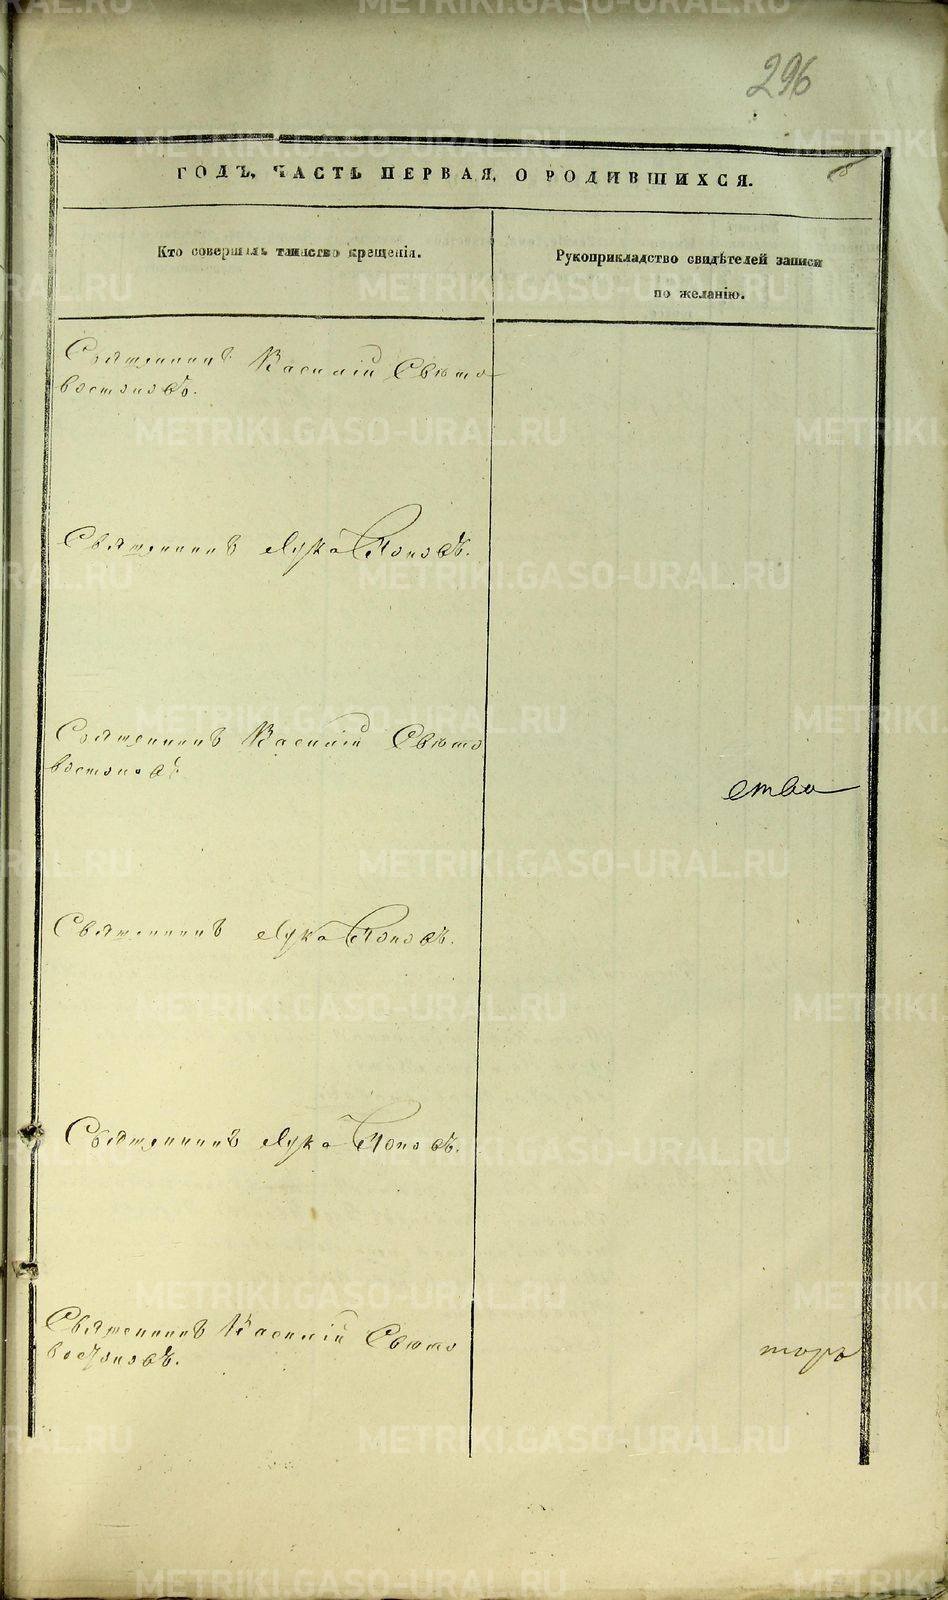 296
ГОДЪ, ЧАСТЬ ПЕРВАЯ, О РОДИВШИХСЯ.
Кто совершалъ таинство крещенія.
Рукоприкладство свидѣтелей записи
по желанію.
Священникъ Василій Свѣто
востоковъ.
Священникъ Лука Поповъ.
Священникъ Василій Свѣто
востоковъ.
ства
Священникъ Лука Поповъ.
Священникъ Лука Поповъ.
Священникъ Василій Свѣто
востоковъ.
торъ
METRIKI.GASO-URAL.RU